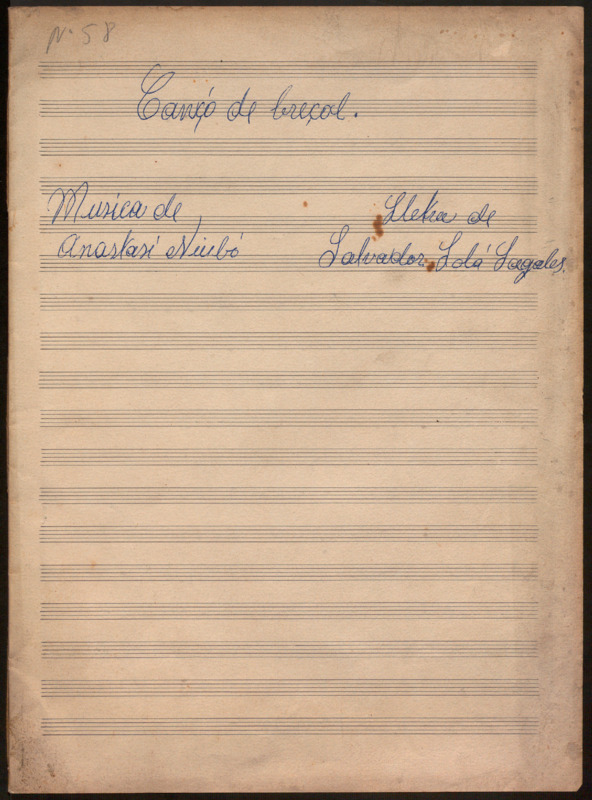 Nº 58
Cançó de breçol.
Musica de
Anastasi Niubó
Lletra de
Salvador Solá Sagales.